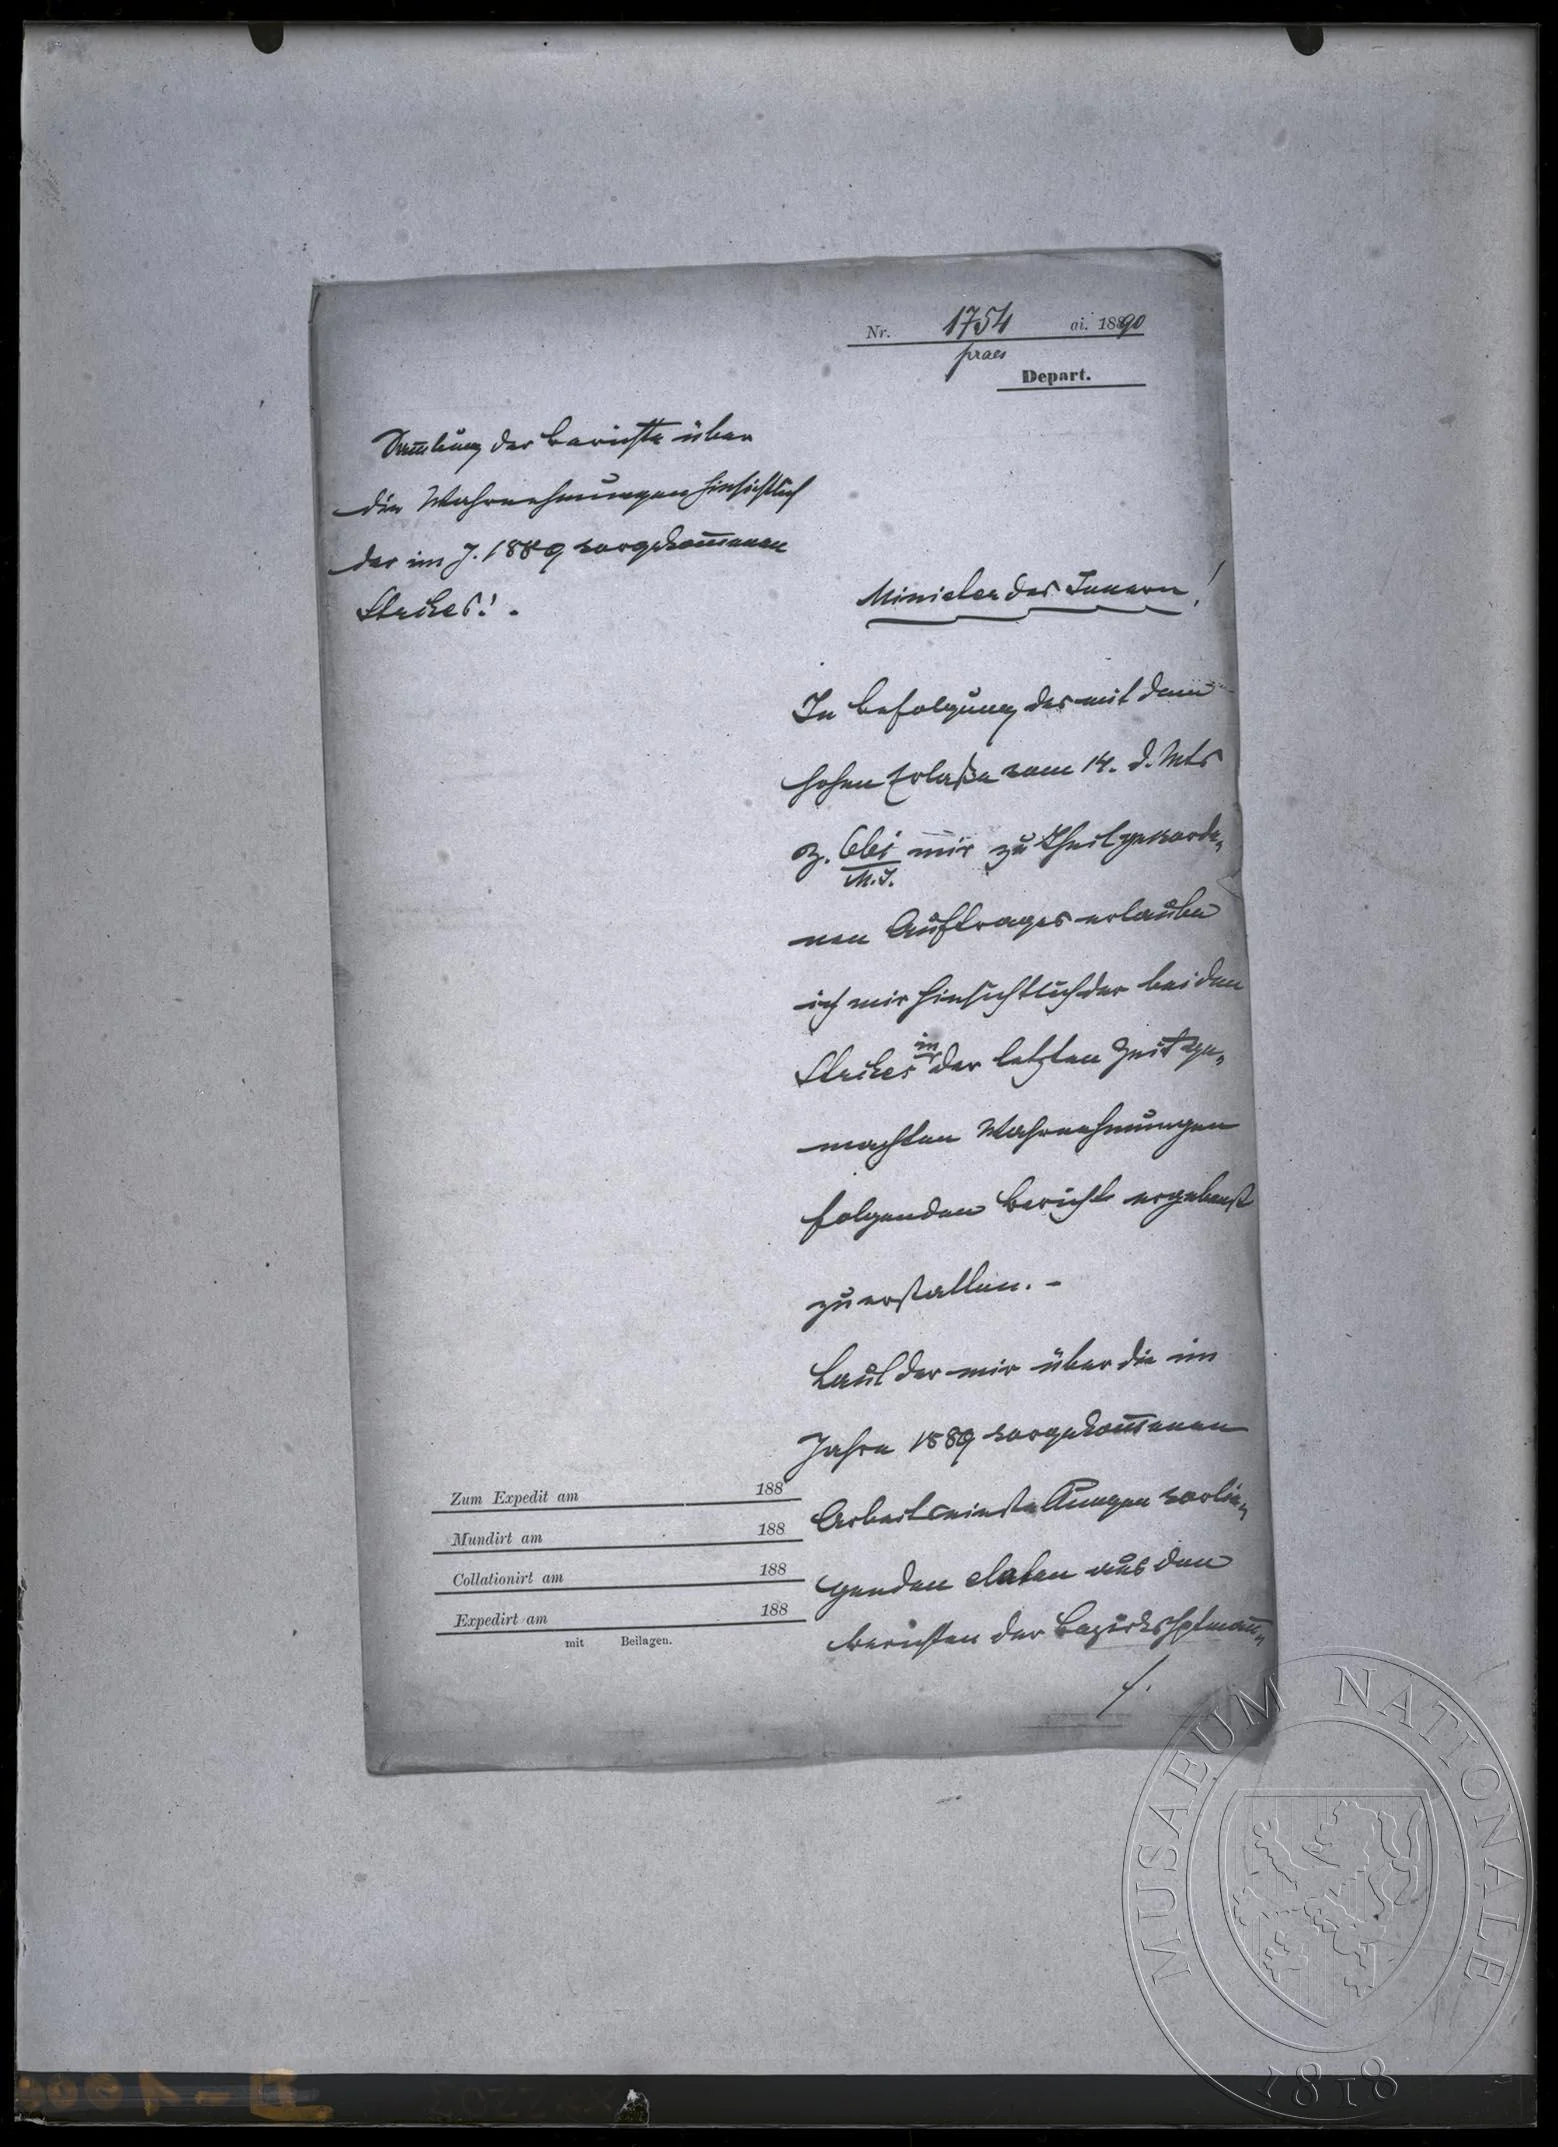 Nr. 1754 ai. 1890
praes
Depart.
Sammlung der Berichte über
die Wahrnehmungen hinsichtlich
der im J. 1889 vorgekom̅enen
Strikes! -
Minister des Innern!
In Befolgung des mit dem
hohen Erlaße vom 14. d. Mts
Z. mir zu Theil geworde„
M.I.
nen Auftrages erlaube
ich mir hinsichtlich der bei den
Strikes in der letzten Zeit ge„
machten Wahrnehmungen
folgenden Bericht ergebenst
zu erstatten. -
Laut der mir über die im
Jahre 1889 vorgekom̅enen
Arbeitseinstellungen vorlie„
genden Daten aus den
Berichten der Bezirkshptman̅„
/.
Zum Expedit am 188
Mundirt am 188
Collationirt am 188
Expedirt am 188
mit Beilagen.
MUSAEUM NATIONALE
1818